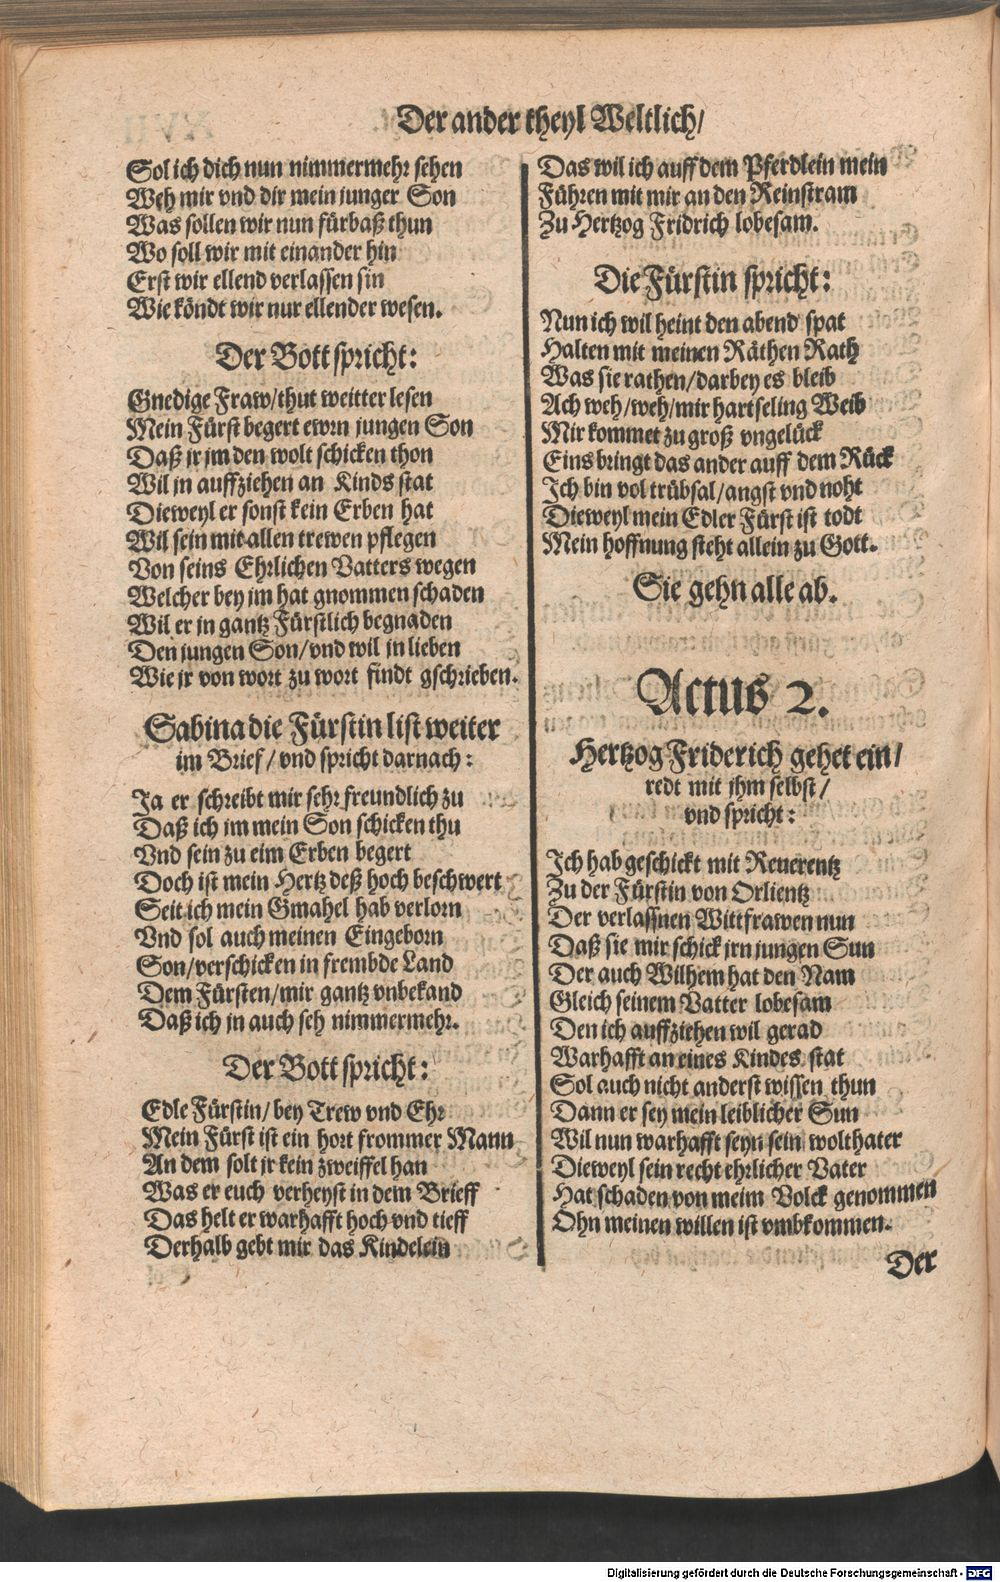 Der ander theyl Weltlich/
Sol ich dich nun nimmermehr sehen
Weh mir vnd dir mein junger Son
Was sollen wir nun fürbaß thun
Wo soll wir mit einander hin
Erst wir ellend verlassen sin
Wie köndt wir nur ellender wesen.
Der Bott spricht:
Gnedige Fraw/thut weitter lesen
Mein Fürst begert ewrn jungen Son
Daß jr jm den wolt schicken thon
Wil jn auffziehen an Kinds stat
Dieweyl er sonst kein Erben hat
Wil sein mit allen trewen pflegen
Von seins Ehrlichen Vatters wegen
Welcher bey jm hat gnommen schaden
Wil er jn gantz Fürstlich begnaden
Den jungen Son/vnd wil jn lieben
Wie jr von wort zu wort findt gschrieben.
Sabina die Fürstin list weiter
im Brief/ vnd spricht darnach:
Ja er schreibt mir sehr freundlich zu
Daß ich im mein Son schicken thu
Vnd sein zu eim Erben begert
Doch ist mein Hertz deß hoch beschwert
Seit ich mein Gmahel hab verlorn
Vnd sol auch meinen Eingeborn
Son/verschicken in frembde Land
Dem Fürsten/mir gantz vnbekand
Daß ich in auch seh nimmermehr.
Der Bott spricht:
Edle Fürstin/ bey Trew vnd Ehr
Mein Fürst ist ein hort frommer Mann
An dem solt jr kein zweiffel han
Was er euch verheyst in dem Brieff
Das helt er warhafft hoch vnd tieff
Derhalb gebt mir das Kindelein
Das wil ich auff dem Pferdlein mein
Führen mit mir an den Reinstram
Zu Hertzog Fridrich lobesam.
Die Fürstin spricht:
Nun ich wil heint den abend spat
Halten mit meinen Räthen Rath
Was sie rathen/darbey es bleib
Ach weh/weh/mir hartseling Weib
Mir kommet zu groß vngelück
Eins bringt das ander auff dem Rück
Ich bin vol trübsal/angst vnd noht
Dieweyl mein Edler Fürst ist todt
Mein hoffnung steht allein zu Gott.
Sie gehn alle ab.
Actus 2.
Hertzog Friderich gehet ein/
redt mit jhm selbst/
vnd spricht:
Ich hab geschickt mit Reuerentz
Zu der Fürstin von Orlientz
Der verlassnen Wittfrawen nun
Daß sie mir schick jrn jungen Sun
Der auch Wilhem hat den Nam
Gleich seinem Vatter lobesam
Den ich auffziehen wil gerad
Warhafft an eines Kindes stat
Sol auch nicht anderst wissen thun
Dann er sey mein leiblicher Sun
Wil nun warhafft seyn sein wolthater
Dieweyl sein recht ehrlicher Vater
Hat schaden von meim Volck genommen
Ohn meinen willen ist vmbkommen.
Der
Digitalisierung gefördert durch die Deutsche Forschungsgemeinschaft - DFG